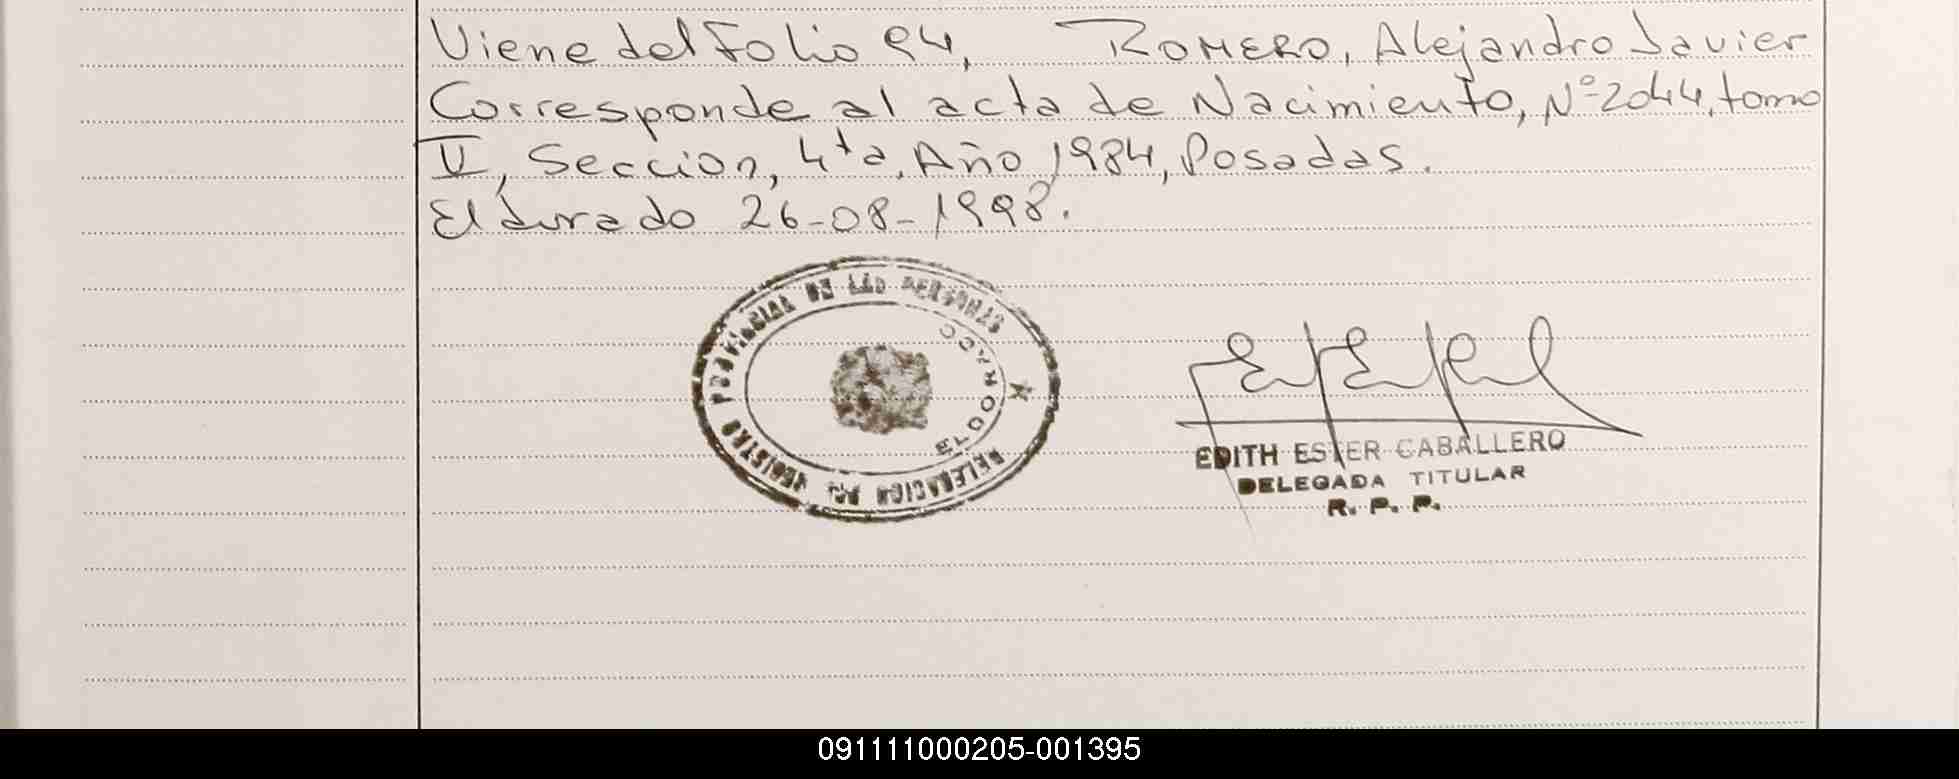 Viene del Folio 94, ROMERO, Alejandro Javier
Corresponde al acta de Nacimiento, Nº 2044, tomo
V, Seccion, 4ta, Año 1984, Posadas.
Eldorado 26-08-1998.
REGISTRO PROVINCIAL DE LAS PERSONAS
ELDORADO
DELEGACION
EDITH ESTER CABALLERO
DELEGADA TITULAR
R. P. P.
091111000205-001395